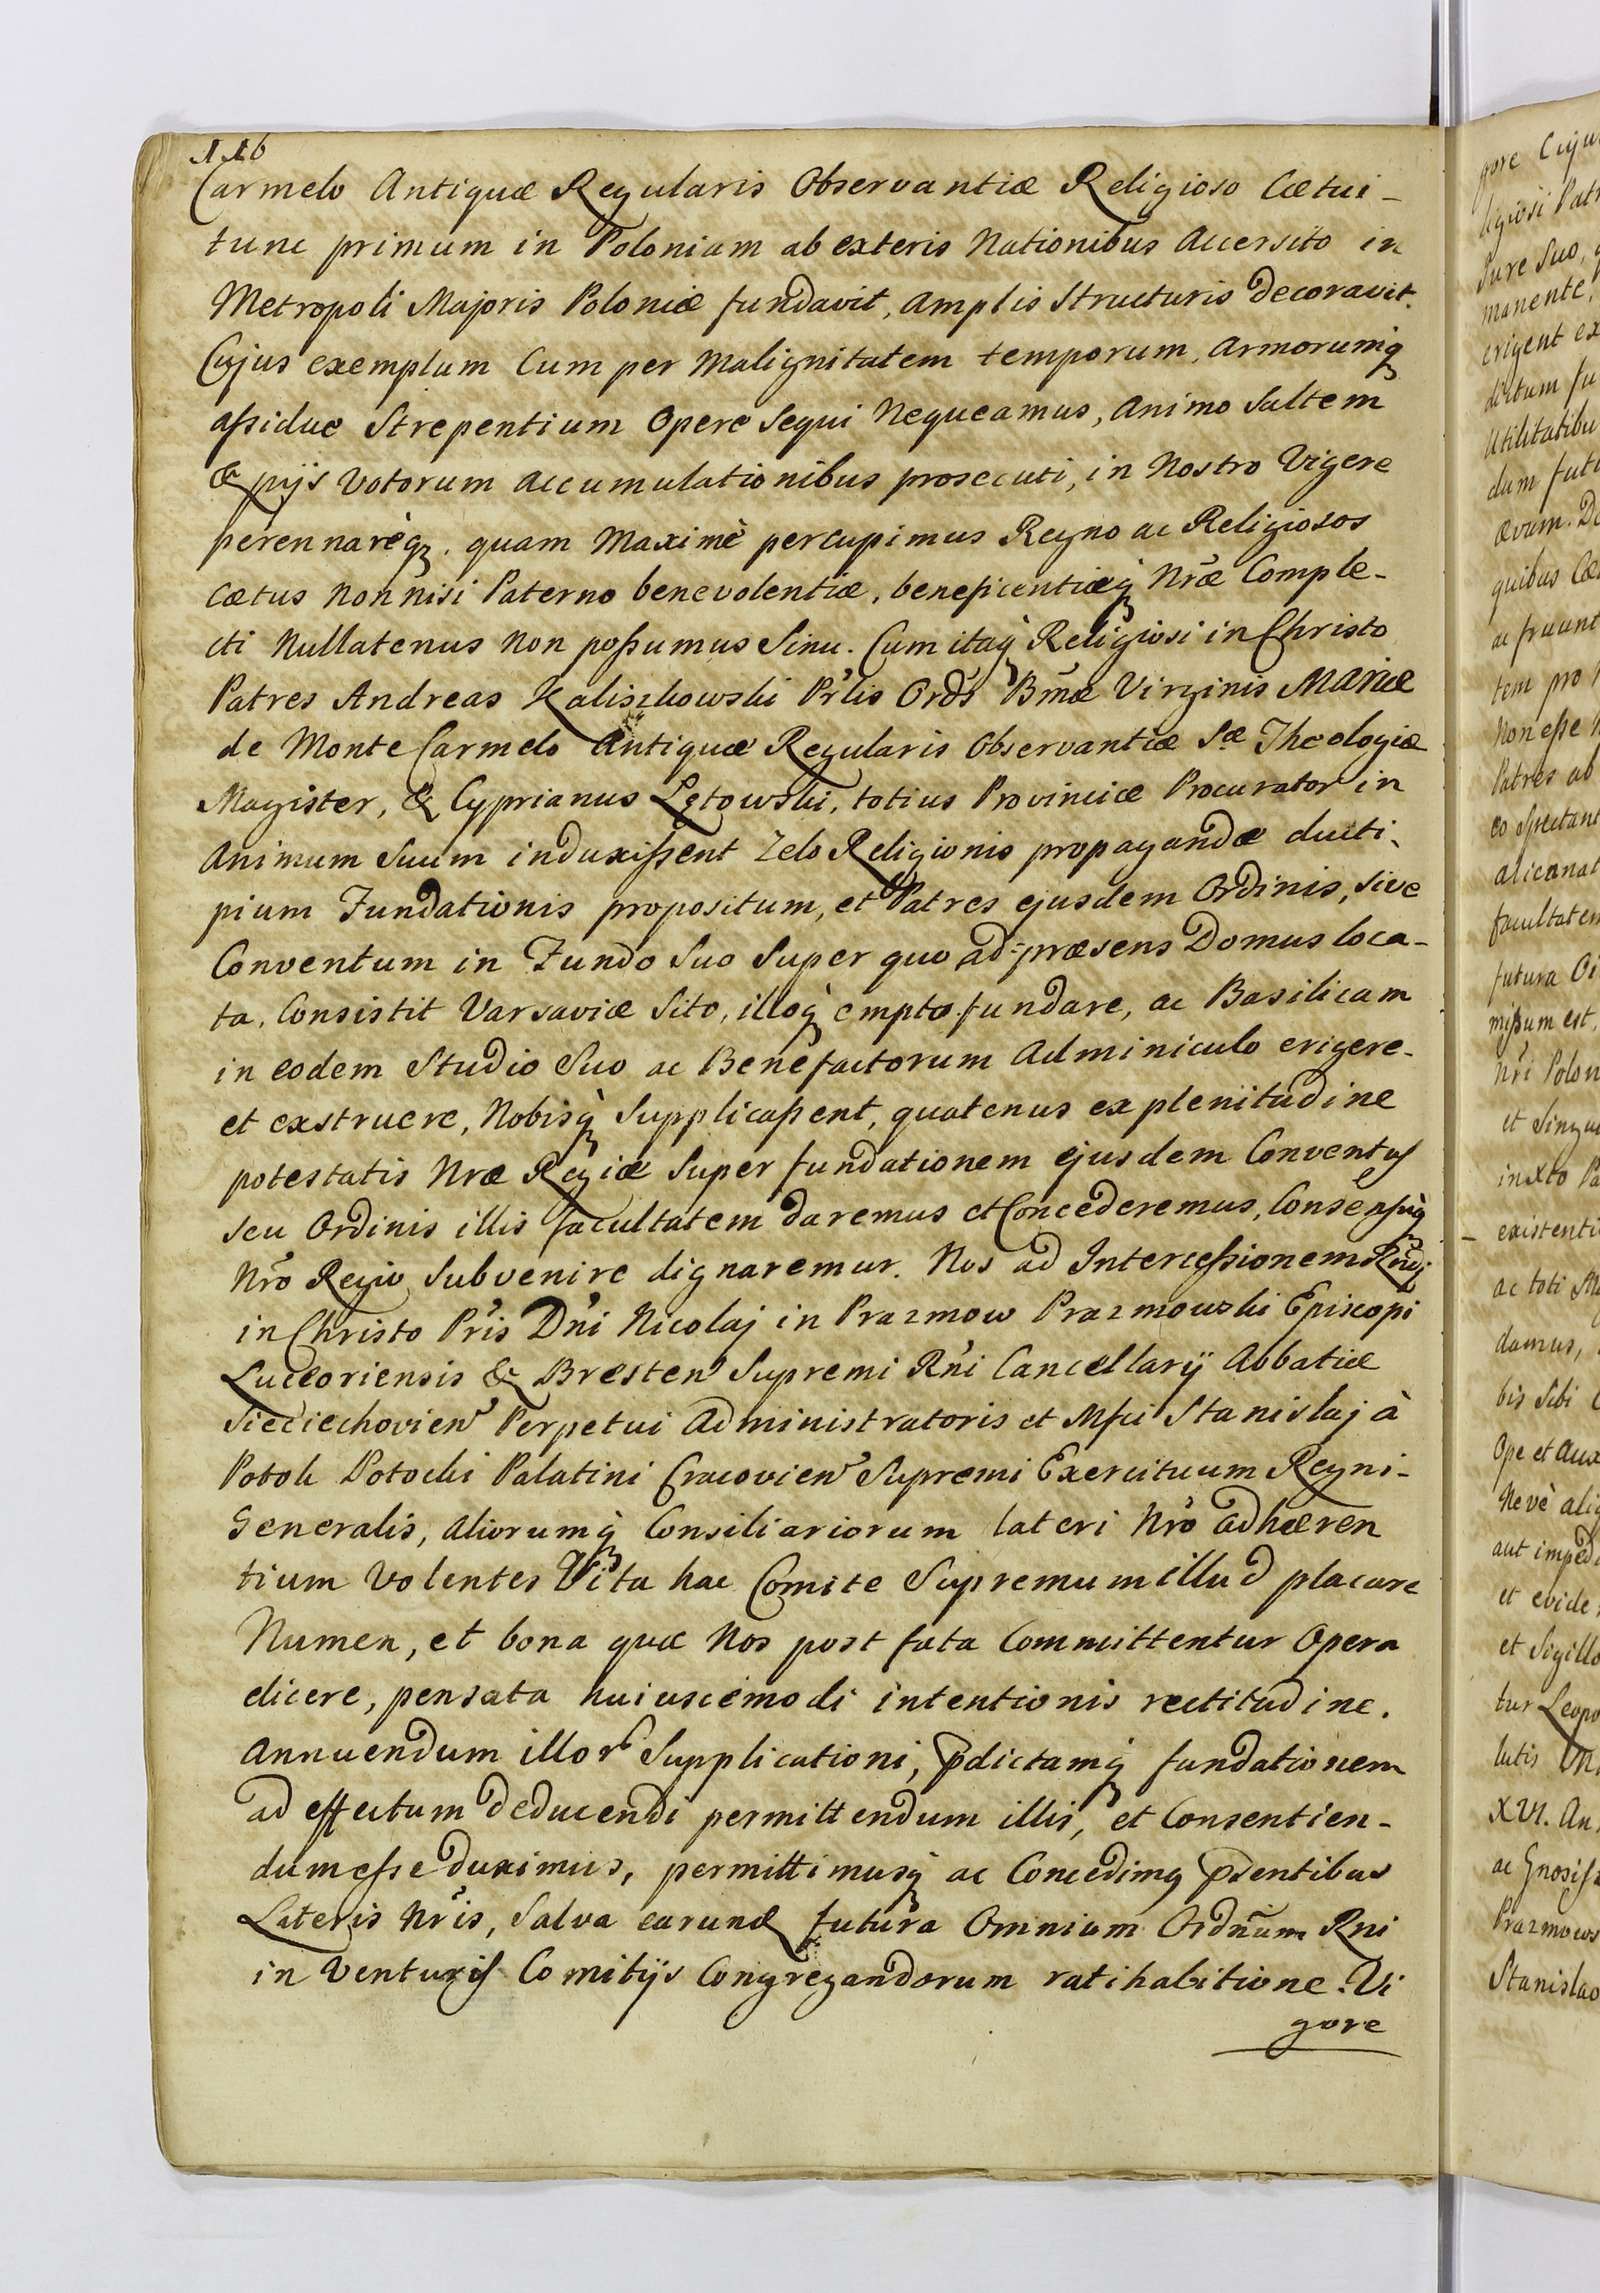 116
Carmelo Antiquæ Regularis Observantiæ Religioso Cætui -
tunc primum in Poloniam ab exteris Nationibus Accersito in
Metropoli Majoris Poloniæ fundavit, Amplis Structuris decoravit.
Cujus exemplum Cum per Malignitatem temporum, Armorumq
aßidue Strepentium Opere Sequi Nequeamus, Animo Saltem
& pijs Votorum Accumulationibus prosecuti, in Nostro Vigere
perennarèq, quam Maximè percupimus Regno ac Religiosos
Cætus Non nisi Paterno benevolentiæ, beneficentiæq Nr̃æ Comple-
cti Nullatenus Non poßumus Sinu. Cum itaq Religiosi in Christo
Patres Andreas Kaliszkowski Pr̃lis Ord̃s Bm̃æ Virginis MARIÆ
de Monte Carmelo Antiquæ Regularis Observantiæ Sæ Theologiæ
Magister, & Cyprianus Lętowski, totius Provinciæ Procurator in
Animum Suum induxißent Zelo Religionis propagandæ ducti,
pium Fundationis propositum, et Patres ejusdem Ordinis, sive
Conventum in Fundo Suo Super quo ad præsens Domus loca-
ta, Consistit Varsaviæ Sito, illoq empto fundare, ac Basilicam
in eodem Studio Suo ac Benefactorum Adminiculo erigere -
et exstruere, Nobisq Supplicaßent, quatenus ex plenitudine
potestatis Nræ Regiæ Super fundationem ejusdem Conventus
seu Ordinis illis facultatem daremus et Concederemus, Consensuq
Nr̃o Regio Subvenire dignaremur. Nos ad Interceßionem Rndi
in Christo Pr̃is Dñi Nicolaj in Prazmow Prazmowski Episcopi
Luceoriensis & Bresten Supremi Rñi Cancellarij Abbatiæ
Sieciechovien Perpetui Administratoris et Mfci Stanislaj à
Potok Potocki Palatini Cracovien Supremi Exercituum Regni -
Generalis, Aliorumq Consiliariorum lateri Nr̃o adhæren
tium Volentes Vita hac Comite Supremum illud placare
Numen, et bona quæ Nos post fata Committentur Opera
elicere, pensata huiuscemodi intentionis rectitudine.
Annuendum illor Supplicationi, p̄dictamq fundationem
ad effectum deducendi permittendum illis, et Consentien-
dum eße duximus, permittimusq ac Concedimq p̄sentibus
Lateris Nr̃is, Salva earund futura Omnium Ordñum Rni
in Venturis Comitijs Congregandorum ratihabitione. Vi
gore